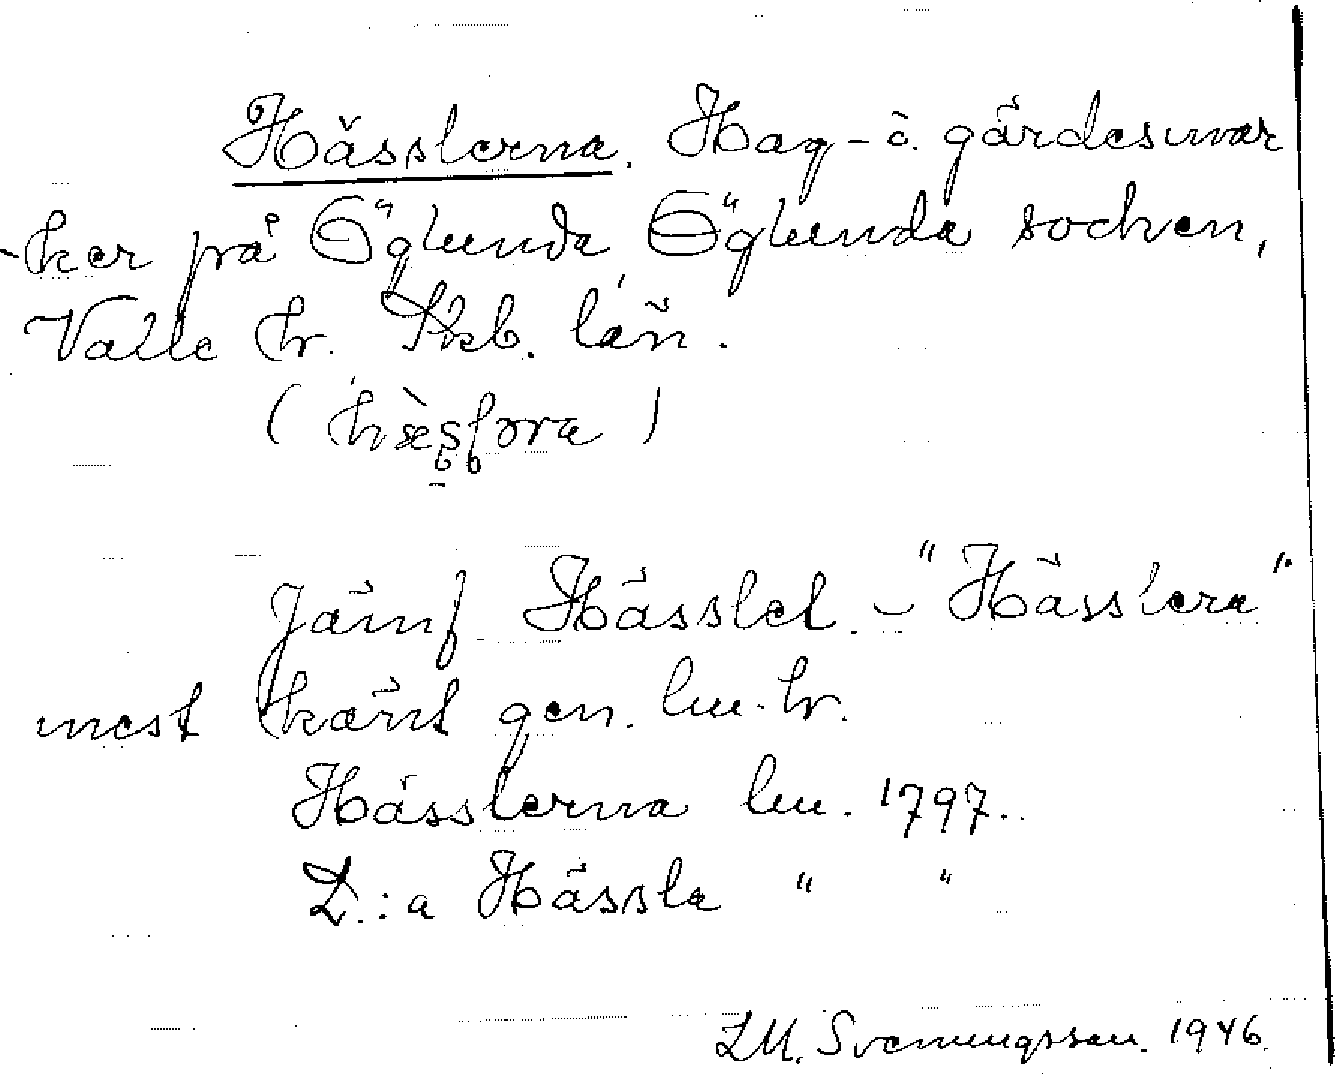 Hässlerna. Hag- o. gärdesmar
-ker på Öglunda, Öglunda socken,
Valle hr. Skb. län.
Jämf Hässlet. - "Hässlera"
mest känt gen. lm. hr.
Hässlerna lm. 1797.
L.:a Hässla " "
LM. Svenungsson. 1946.